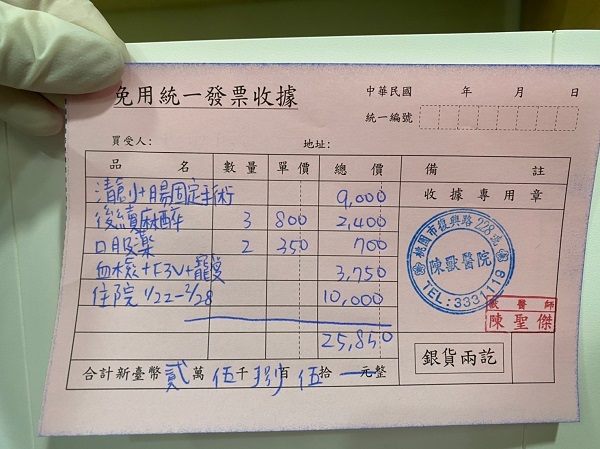 免用統一發票收據
中華民國 年 月 日
統一編號
買受人： 地址：
品 名 數量 單價 總 價 備 註
清創+腸固定手術 9,000 收據專用章
後續麻醉 3 800 2,400
口服藥 2 350 700
血檢+F3V+ 3,750
住院 1/22-2/28 10,000
25,850
桃園市復興路228號
陳獸醫院
TEL:3331119
獸醫師
陳聖傑
銀貨兩訖
合計新臺幣貳萬伍千捌百伍拾 元整